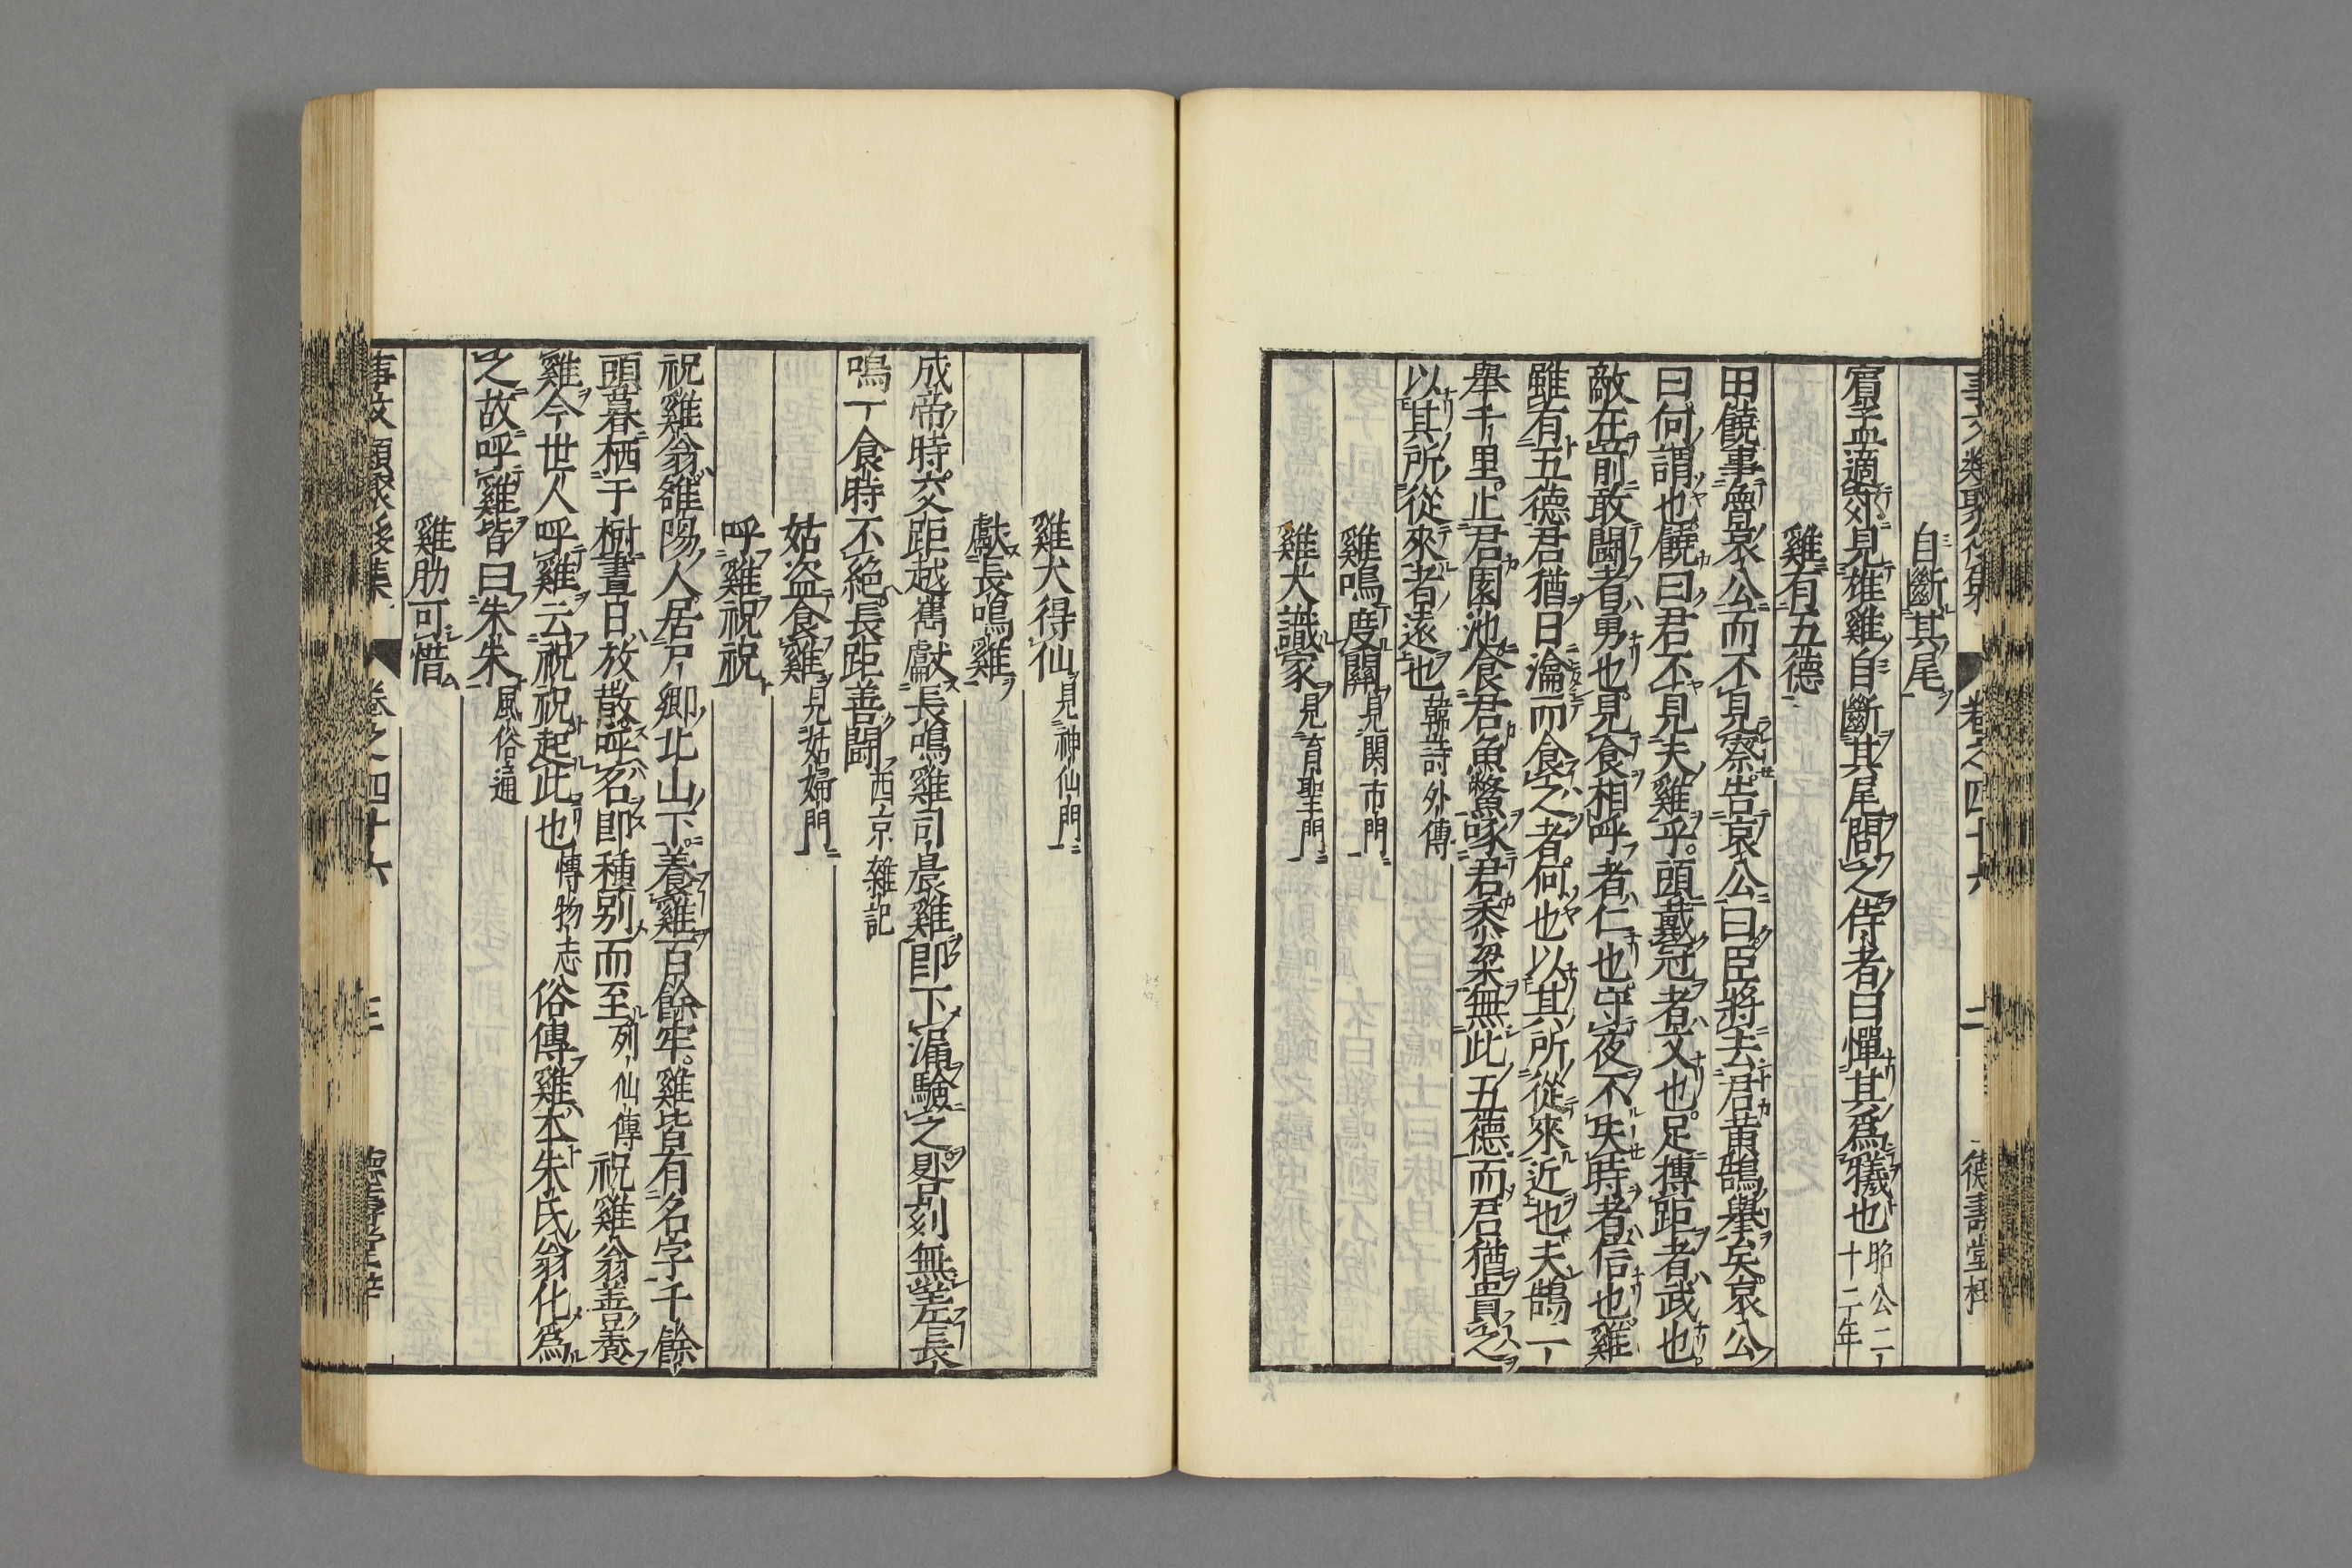 自斷其尾
賓孟適郊見雄雞自斷其尾問之侍者曰憚其爲犧也昭公二十二年
雞有五德
田饒事魯哀公而不見察告哀公曰臣將去君黃鵠擧矣哀公
曰何謂也饒曰君不見夫雞乎頭戴冠者文也足搏距者武也
敵在前敢鬪者勇也見食相呼者仁也守夜不失時者信也雞
雖有五德君猶日瀹而食之者何也以其所從來近也夫鵠一
擧千里止君園池食君魚鱉啄君黍梁無此五德而君猶貴之
以其所從來者遠也韓詩外傳
雞鳴度關見関市門
雞犬識家見育聖門
雞犬得仙見神仙門
獻長鳴雞
成帝時交距越雋獻長鳴雞司晨雞卽下漏驗之晷刻無差長
鳴一食時不絕長距善鬪西京雜記
姑盗食雞見姑婦門
呼雞祝祝
祝雞翁雒陽人居尸鄉北山下養雞百餘年雞皆有名字千餘
頭暮栖于樹晝日放散呼名卽種别而至列仙傳祝雞翁善養
雞今世人呼雞云祝祝起此也博物志俗傳雞本朱氏翁化爲
之故呼雞皆曰朱朱風俗通
雞肋可惜
事文類聚後集 卷之四十六 三